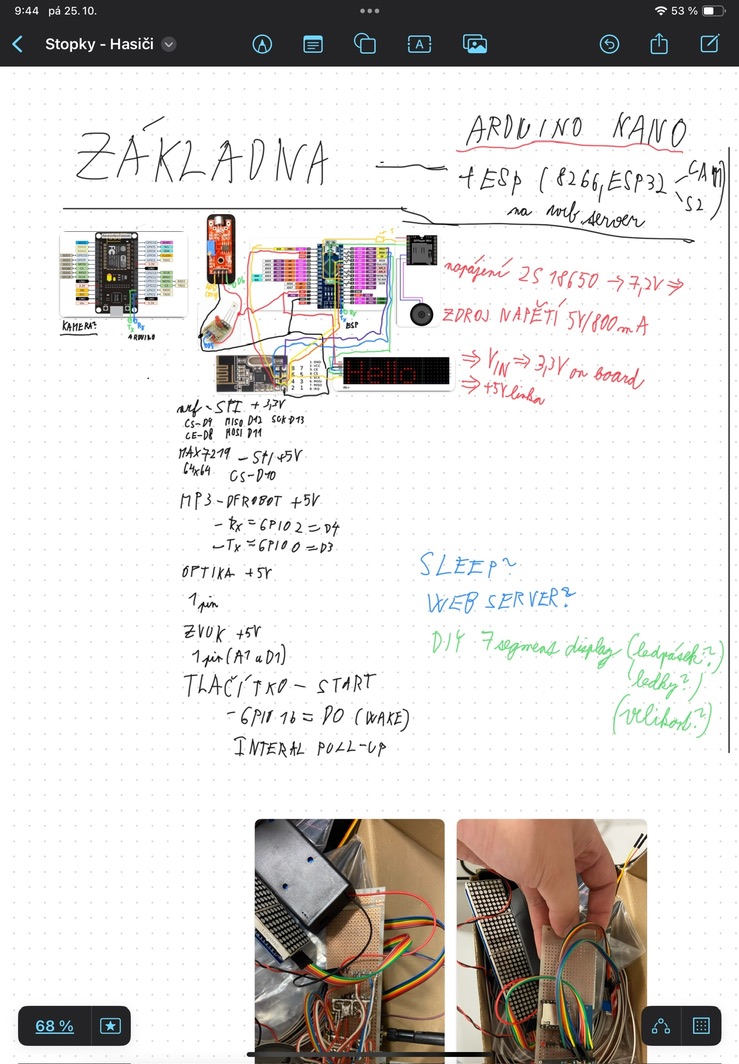 9:44 pá 25. 10.
53 %
Stopky - Hasiči
ZÁKLADNA
ARDUINO NANO
+ ESP (8266, ESP32 CAM S2)
na web server
KAMERA?
ARDUINO
ESP
Hello
napájení 2S 18650 → 7,2V ⇒
ZDROJ NAPĚTÍ 5V/800mA
⇒ VIN ⇒ 3,3V on board
⇒ +5V linka
nrf - SPI + 3,3V
CS-D9 MISO D12 SCK D13
CE-D8 MOSI D11
MAX7219 - SPI +5V
64x64
CS-D10
MP3 - DFROBOT +5V
- Rx = GPIO 2 = D4
- Tx = GPIO 0 = D3
OPTIKA +5V
1 pin
ZVUK +5V
1 pin (A1 a D1)
TLAČÍTKO - START
- GPIO 16 = D0 (WAKE)
INTERAL PULL-UP
SLEEP?
WEB SERVER?
DIY 7 segment display (ledpásek?)
(ledky?)
(velikost?)
68 %